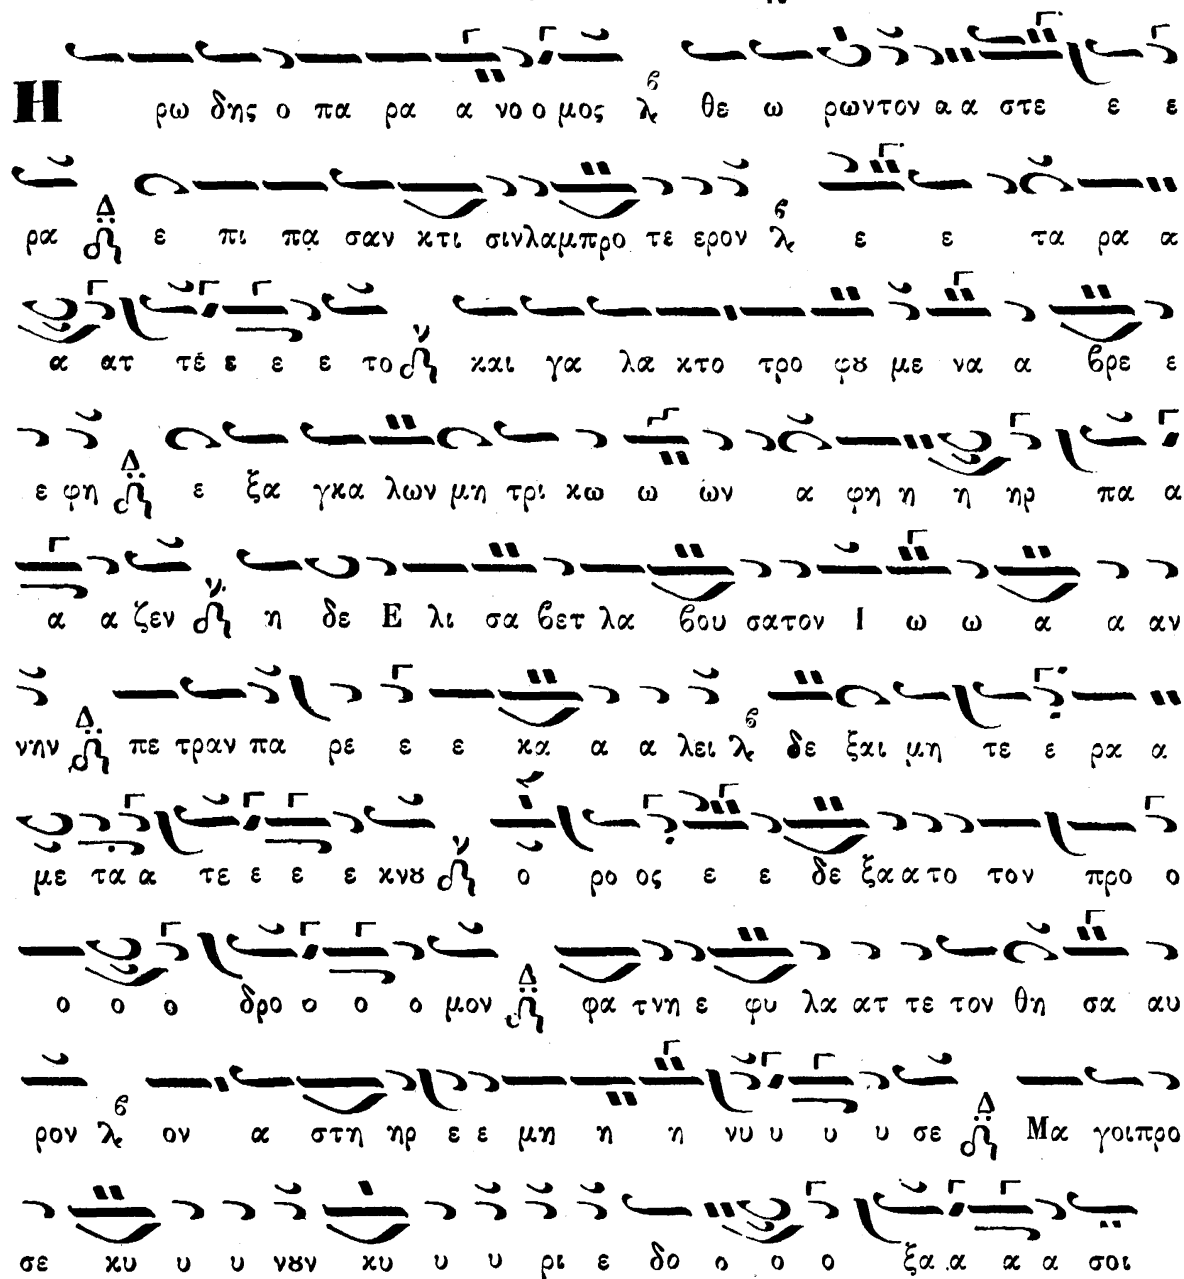 Η ρω δης ο πα ρα α νο ο μος λ ϐ θε ω ρωντον α α στε ε ε
ρα Δ ε πι πα σαν κτι σινλαμπρο τε ερον λ ϐ ε ε τα ρα α
α ατ τέ ε ε ε το ν και γα λα κτο τρο φȣ με να α ϐρε ε
ε φη Δ ε ξα γκα λων μη τρι κω ω ων α φη η η ηρ πα α
α α ζεν ν η δε Ε λι σα ϐετ λα ϐου σατον Ι ω ω α α αν
νην Δ πε τραν πα ρε ε ε κα α α λει λ ϐ δε ξαι μη τε ε ρα α
με τα α τε ε ε ε κνȣ ν ο ρο ος ε ε δε ξα α το τον προ ο
ο ο ο δρο ο ο ο μον Δ φα τνη ε φυ λα ατ τε τον θη σα αυ
ρον λ ϐ ον α στη ηρ ε ε μη η η νυ υ υ υ σε Δ Μα γοιπρο
σε κυ υ υ νȣν κυ υ υ ρι ε δο ο ο ο ξα α α α σοι